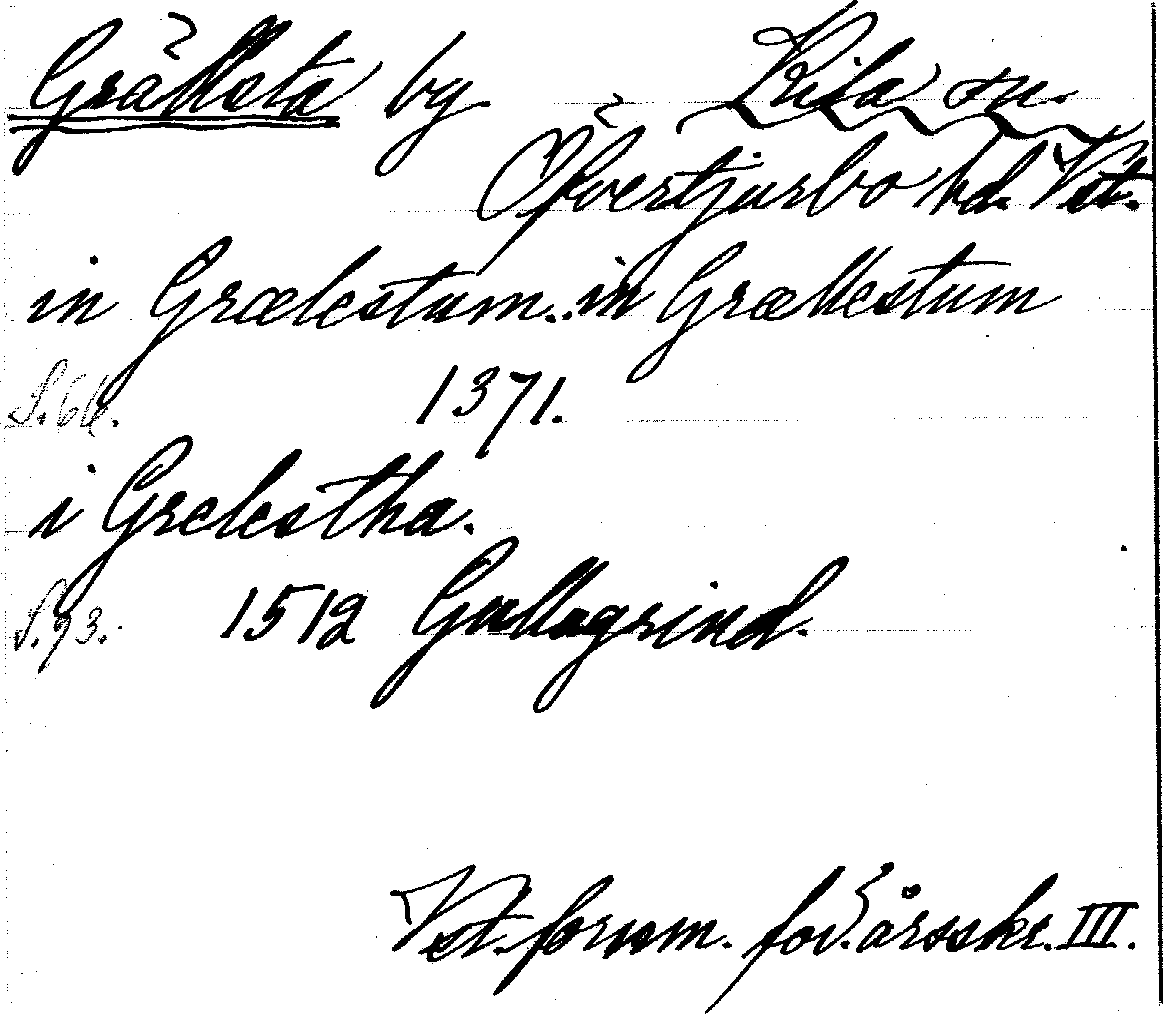 Grällsta by Kila sn.
Övertjurbo hd. Vst.
in Grælestum.. in Grællestum
S. 66. 1371.
i Grelestha.
S. 93. 1512 Gullagrind.
Vst. fornm. för. årsskr. III.